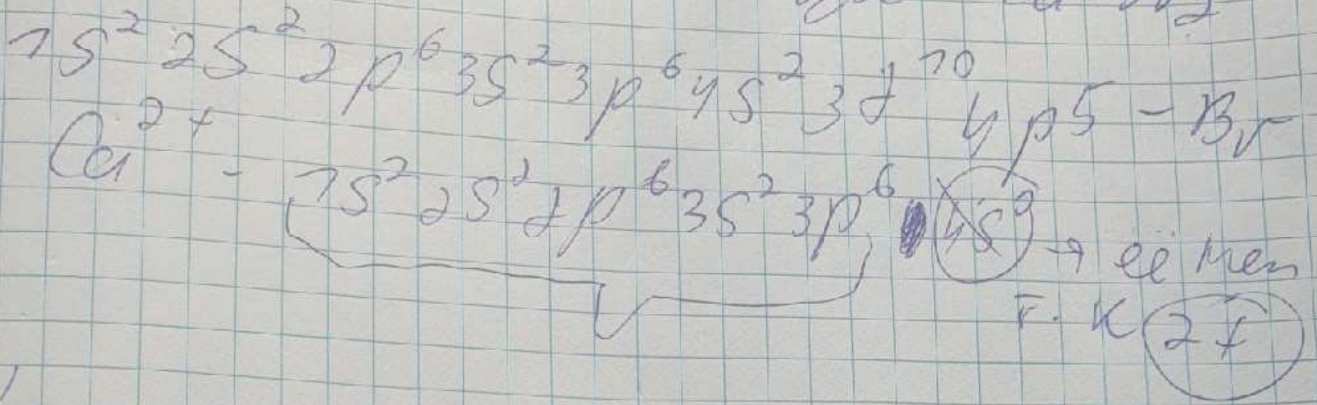 1S² 2S² 2p⁶ 3S² 3p⁶ 4S² 3d¹⁰ 4p5 - Br
Ca²⁺ - 1S² 2S² 2p⁶ 3S² 3p⁶ 4S⁰ → её нет
т. к 2+